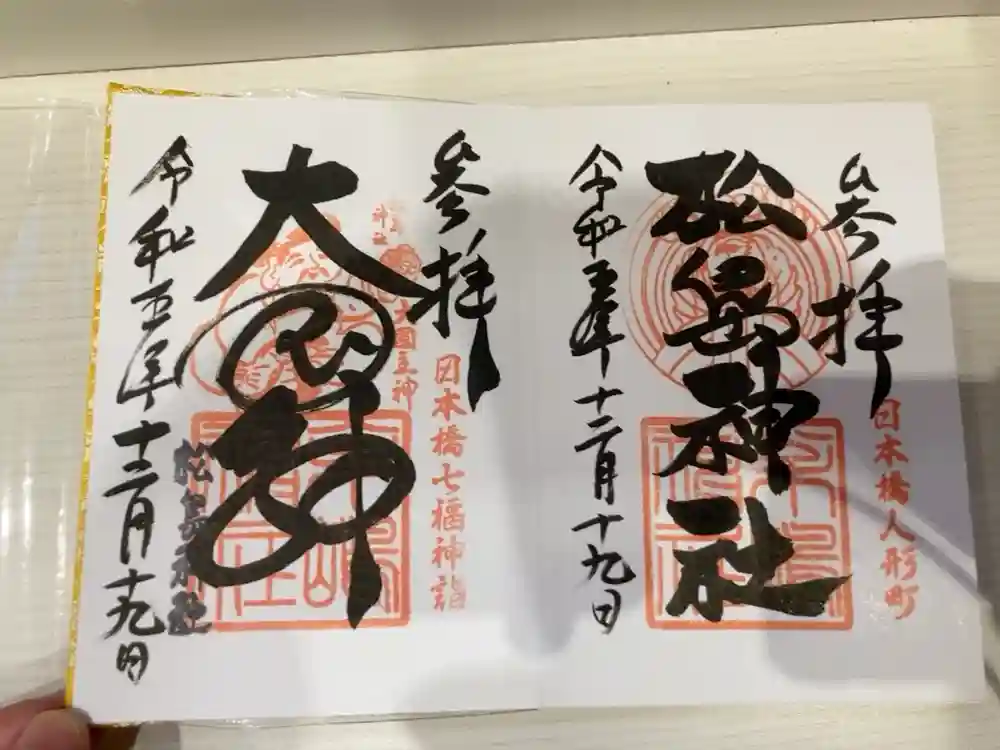 参拝
日本橋人形町
松島神社
令和五年十二月十九日
参拝
日本橋七福神詣
大国主神
大国神
令和五年十二月十九日
松島神社